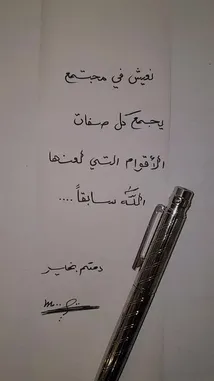 نعيش في مجتمع
يجمع كل صفات
الأقوام التي لعنها
الله سابقاً ....
دمتم بخير